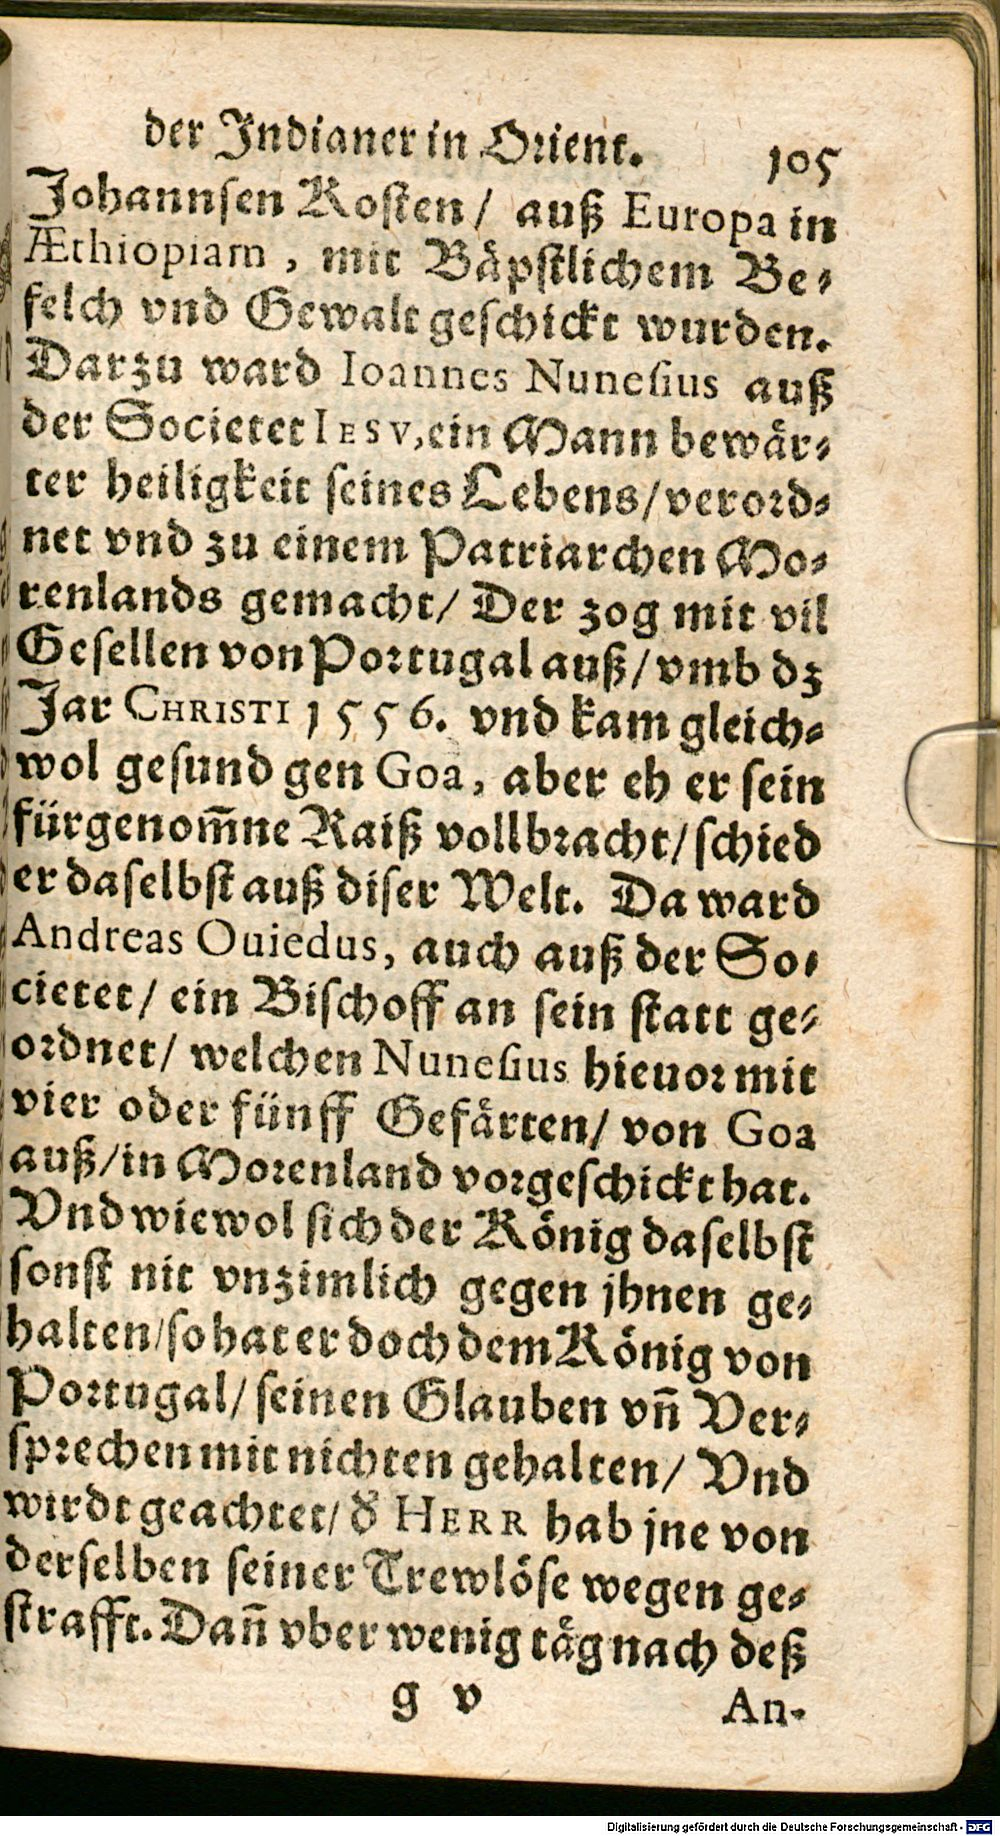 der Indianer in Orient. 105
Johannsen Kosten/ auß Europa in
Æthiopiam, mit Bäpstlichem Be-
felch vnd Gewalt geschickt wurden.
Darzu ward Ioannes Nunesius auß
der Societet IESV, ein Mann bewär-
ter heiligkeit seines Lebens/ verord-
net vnd zu einem Patriarchen Mo-
renlands gemacht/ Der zog mit vil
Gesellen von Portugal auß/ vmb dz
Jar CHRISTI 1556. vnd kam gleich-
wol gesund gen Goa, aber eh er sein
fürgenom̃ne Raiß vollbracht/ schied
er daselbst auß diser Welt. Da ward
Andreas Ouiedus, auch auß der So-
cietet/ ein Bischoff an sein statt ge-
ordnet/ welchen Nunesius hieuor mit
vier oder fünff Gefärten/ von Goa
auß/ in Morenland vorgeschickt hat.
Vnd wiewol sich der König daselbst
sonst nit vnzimlich gegen jhnen ge-
halten/ so hat er doch dem König von
Portugal/ seinen Glauben vñ Ver-
sprechen mit nichten gehalten/ Vnd
wirdt geachtet/ d̕ HERR hab jne von
derselben seiner Trewlöse wegen ge-
strafft. Dañ vber wenig täg nach deß
g v An-
Digitalisierung gefördert durch die Deutsche Forschungsgemeinschaft - DFG